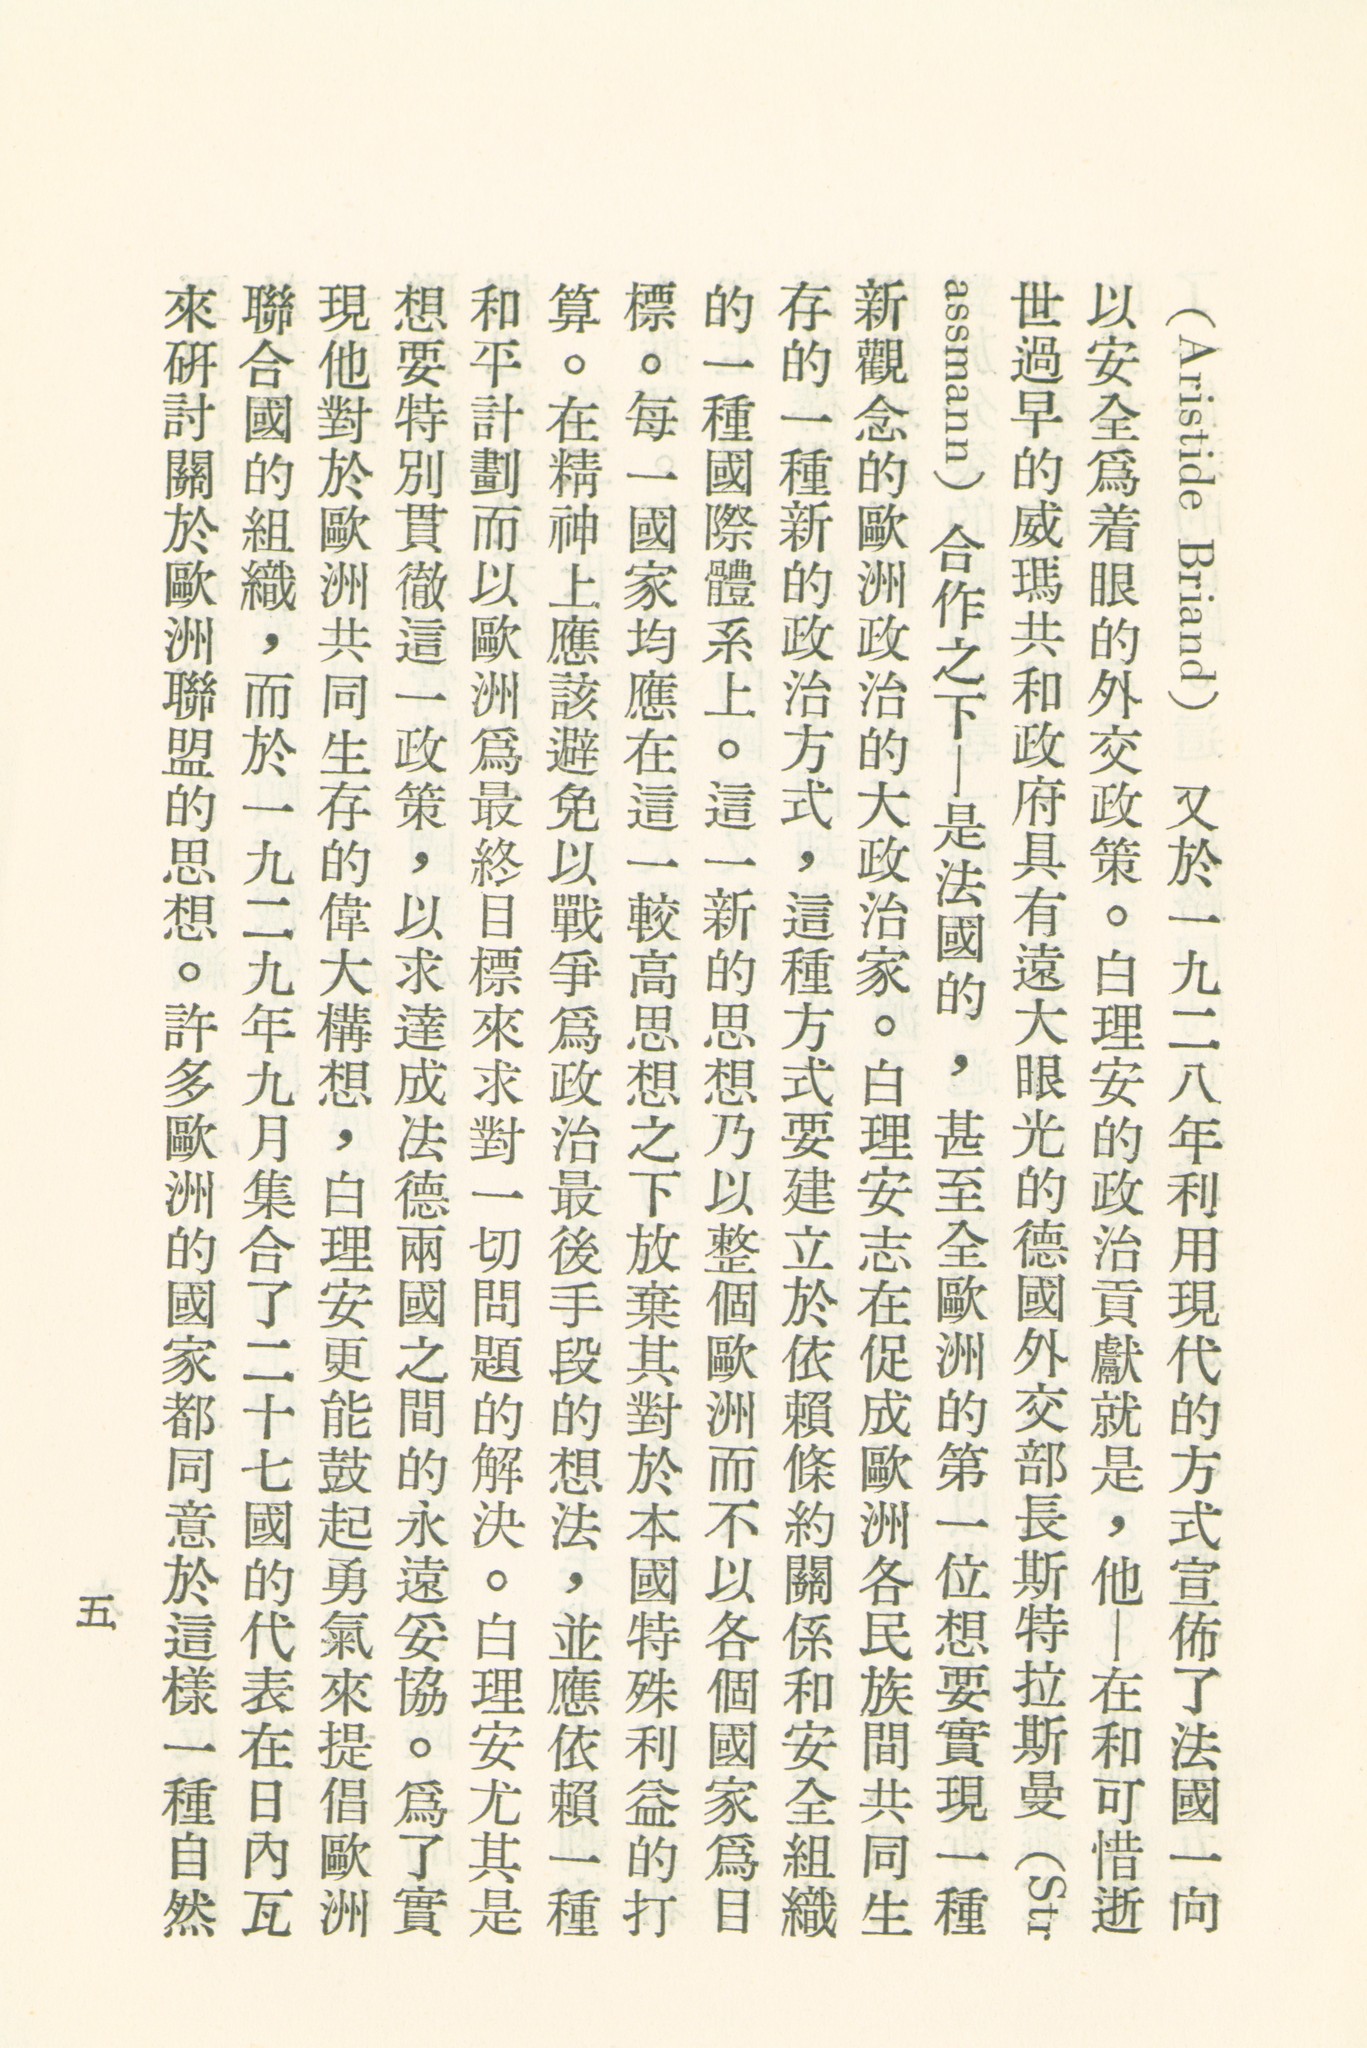 （Aristide Briand）又於一九二八年利用現代的方式宣佈了法國一向
以安全爲着眼的外交政策。白理安的政治貢獻就是，他—在和可惜逝
世過早的威瑪共和政府具有遠大眼光的德國外交部長斯特拉斯曼（Str
assmann）合作之下—是法國的，甚至全歐洲的第一位想要實現一種
新觀念的歐洲政治的大政治家。白理安志在促成歐洲各民族間共同生
存的一種新的政治方式，這種方式要建立於依賴條約關係和安全組織
的一種國際體系上。這一新的思想乃以整個歐洲而不以各個國家爲目
標。每一國家均應在這一較高思想之下放棄其對於本國特殊利益的打
算。在精神上應該避免以戰爭爲政治最後手段的想法，並應依賴一種
和平計劃而以歐洲爲最終目標來求對一切問題的解決。白理安尤其是
想要特別貫徹這一政策，以求達成法德兩國之間的永遠妥協。爲了實
現他對於歐洲共同生存的偉大構想，白理安更能鼓起勇氣來提倡歐洲
聯合國的組織，而於一九二九年九月集合了二十七國的代表在日內瓦
來研討關於歐洲聯盟的思想。許多歐洲的國家都同意於這樣一種自然
五